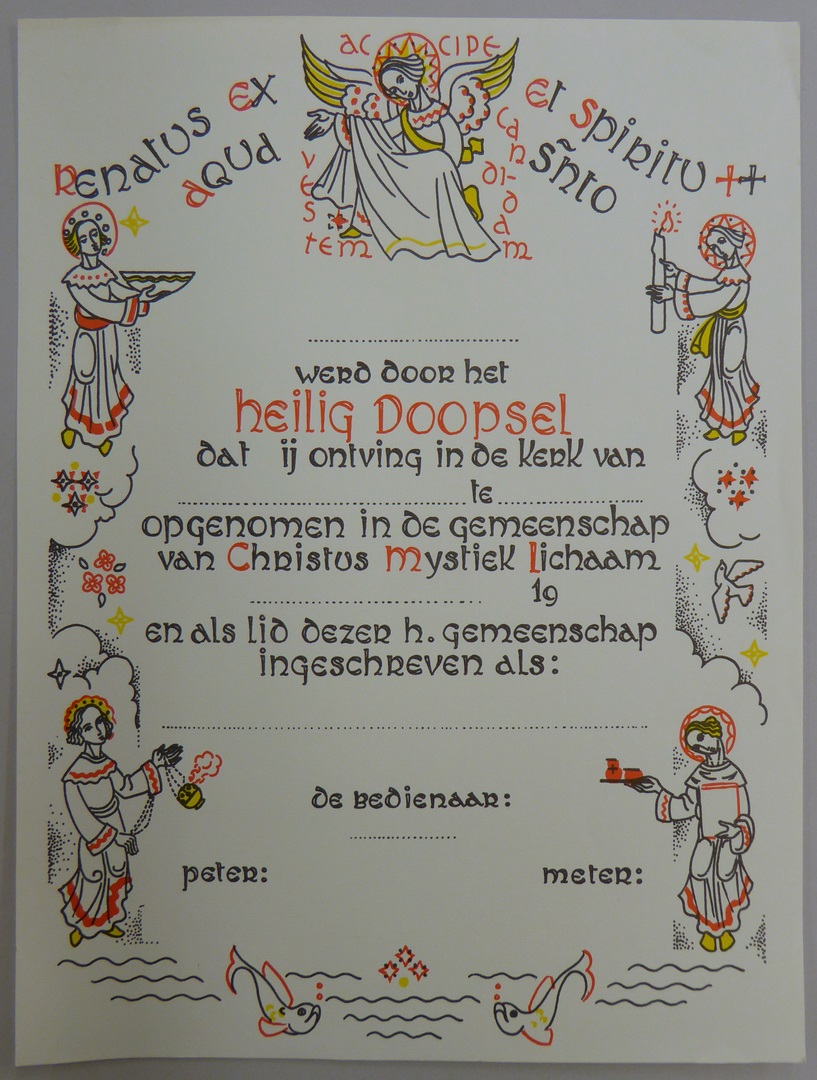 ACCIPE
VESTEM
CANDIDAM
RENATUS EX
AQUA
ET SPIRITU ++
SÑTO
werd door het
heilig Doopsel
dat ij ontving in de kerk van
te
opgenomen in de gemeenschap
van Christus Mystiek Lichaam
19
en als lid dezer h. gemeenschap
ingeschreven als:
de bedienaar:
peter: meter: